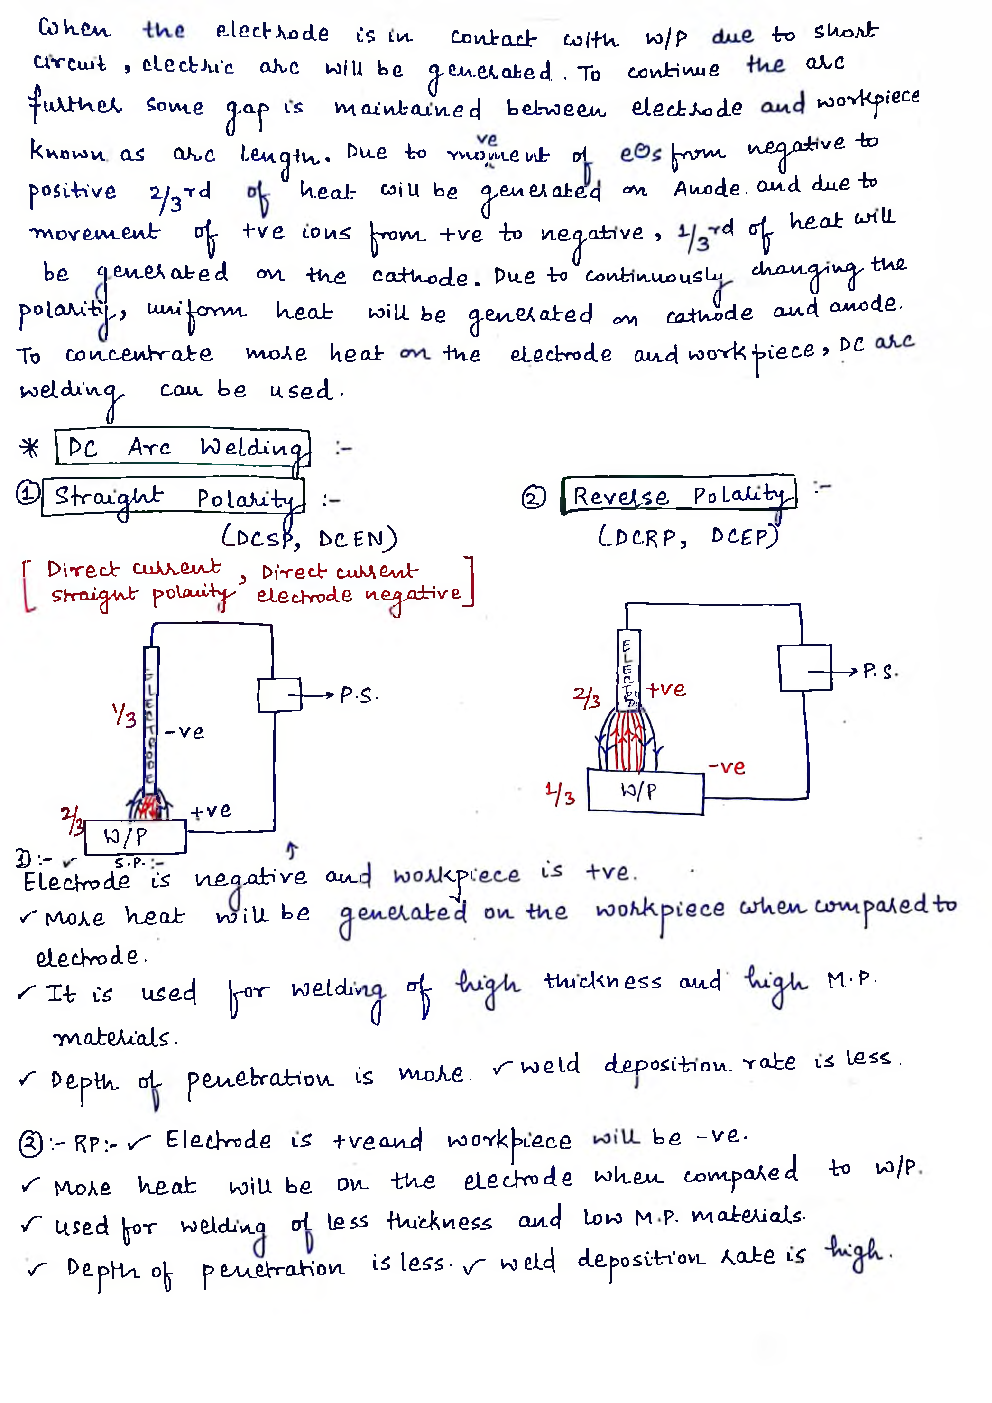 When the electrode is in contact with W/P due to short
circuit, electric arc will be generated. To continue the arc
further some gap is maintained between electrode and workpiece
known as arc length. Due to moment of e⊖s from negative to
ve
positive 2/3rd of heat will be generated on Anode. and due to
movement of +ve ions from +ve to negative, 1/3rd of heat will
be generated on the cathode. Due to continuously changing the
polarity, uniform heat will be generated on cathode and anode.
To concentrate more heat on the electrode and workpiece, DC arc
welding can be used.
* DC Arc Welding :-
① Straight Polarity :-
(DCSP, DCEN)
[Direct current, Direct current
straight polarity electrode negative]
② Reverse Polarity :-
(DCRP, DCEP)
1/3
ELECTRODE
-ve
P.S.
2/3
+ve
W/P
S.P. :-
2/3
+ve
P.S.
-ve
1/3
W/P
1) :- ✓
Electrode is negative and workpiece is +ve.
✓ More heat will be generated on the workpiece when compared to
electrode.
✓ It is used for welding of high thickness and high M.P.
materials.
✓ Depth of penetration is more. ✓ weld deposition rate is less.
② :- RP:- ✓ Electrode is +ve and workpiece will be -ve.
✓ More heat will be on the electrode when compared to W/P.
✓ used for welding of less thickness and low M.P. materials.
✓ Depth of penetration is less. ✓ weld deposition rate is high.